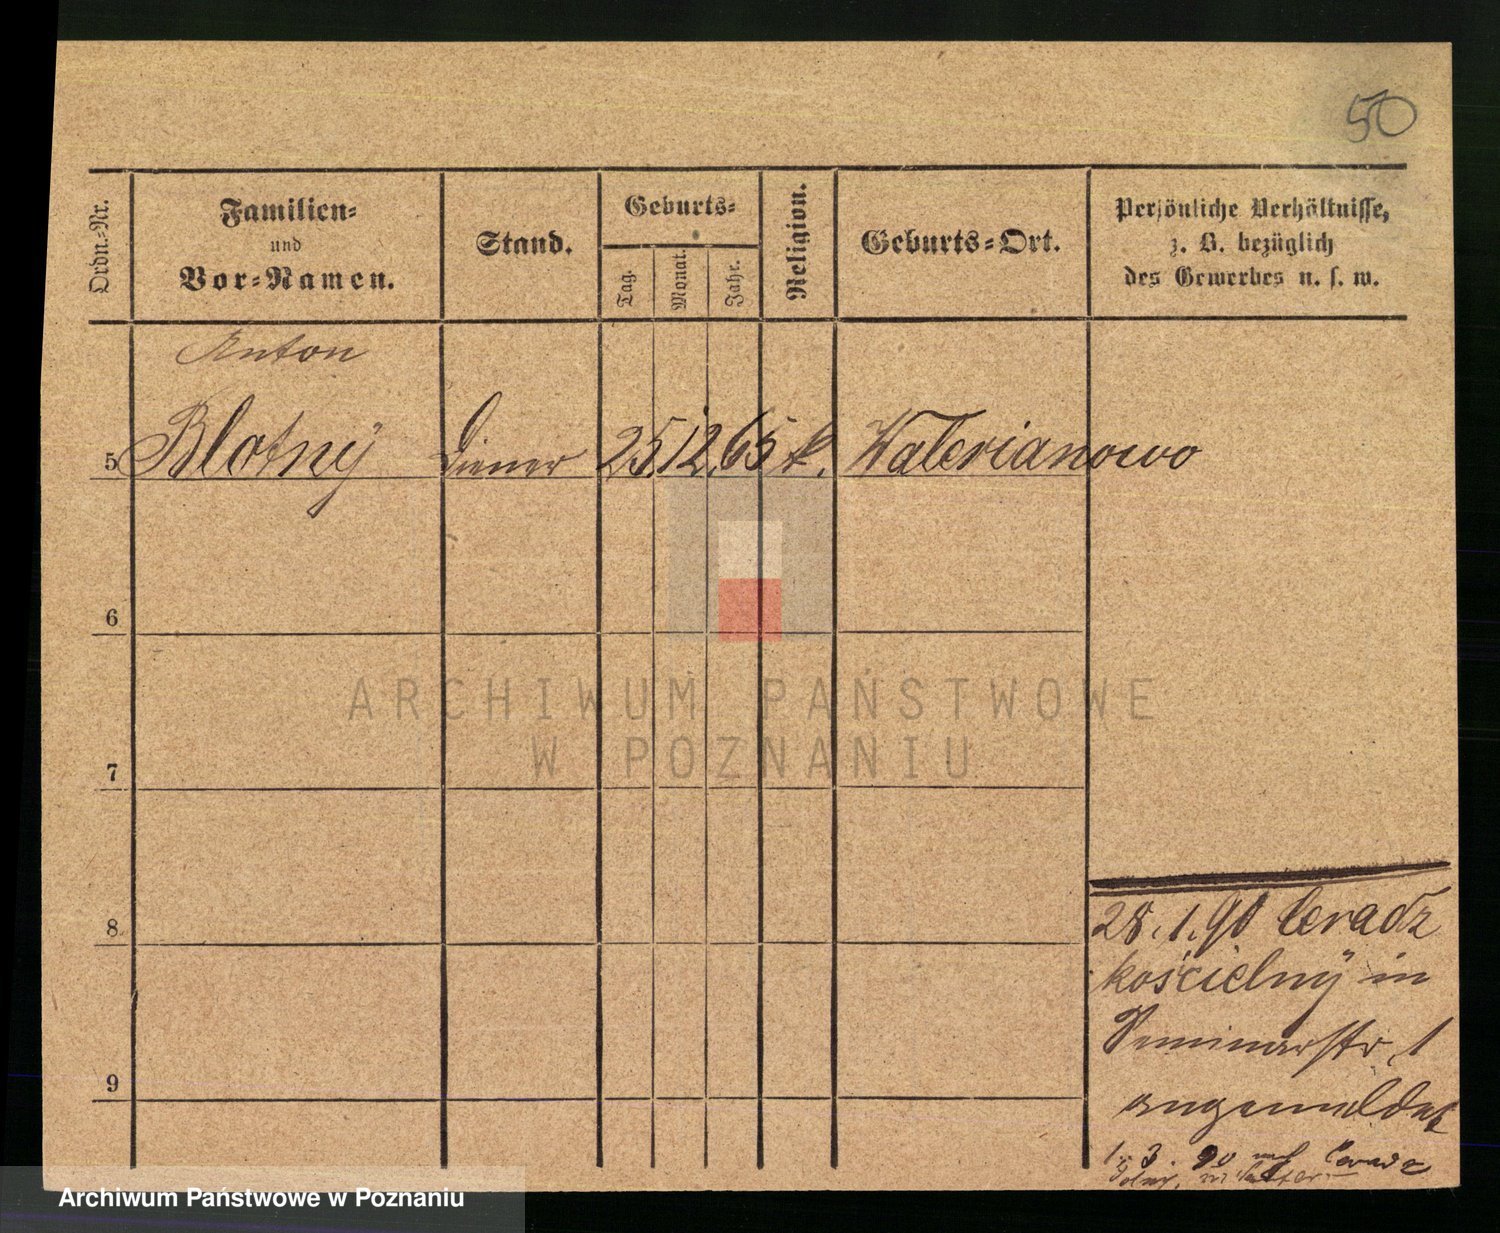 50
Ordn.-Nr.
Familien-
und
Vor-Namen.
Stand.
Geburts-
Tag.
Monat.
Jahr.
Religion.
Geburts-Ort.
Persönliche Verhältnisse,
z. B. bezüglich
des Gewerbes u. s. w.
Anton
5 Blotny Diener 25 12. 65 k. Walerianowo
6
ARCHIWUM PAŃSTWOWE
W POZNANIU
7
8.
9
28. 1. 90 Ceradz
kościelny in
Seminarstr. 1
angemeldet
1. 3. 90 nach Ceradz
Archiwum Państwowe w Poznaniu